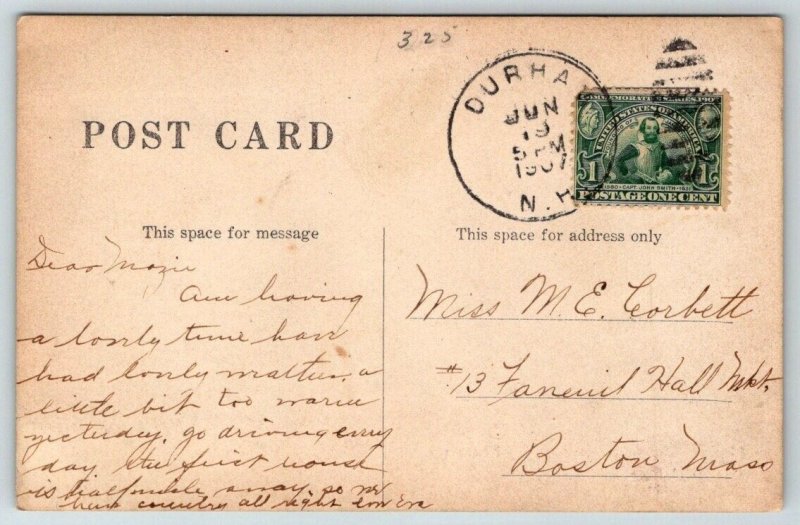 325
DURHA
JUN
19
5 PM
1907
N.H.
COMMEMORATIVE SERIES 1907
UNITED STATES OF AMERICA
1580 · CAPT. JOHN SMITH · 1631
1 1
POSTAGE ONE CENT
POST CARD
This space for message
This space for address only
Dear Mazie
Am having
a lovely time have
had lovely weather, a
little bit too warm
yesterday, go driving every
day the first house
is half mile away, so
country all right
Miss M. E. Corbett
#13 Faneuil Hall Mkt.
Boston Mass